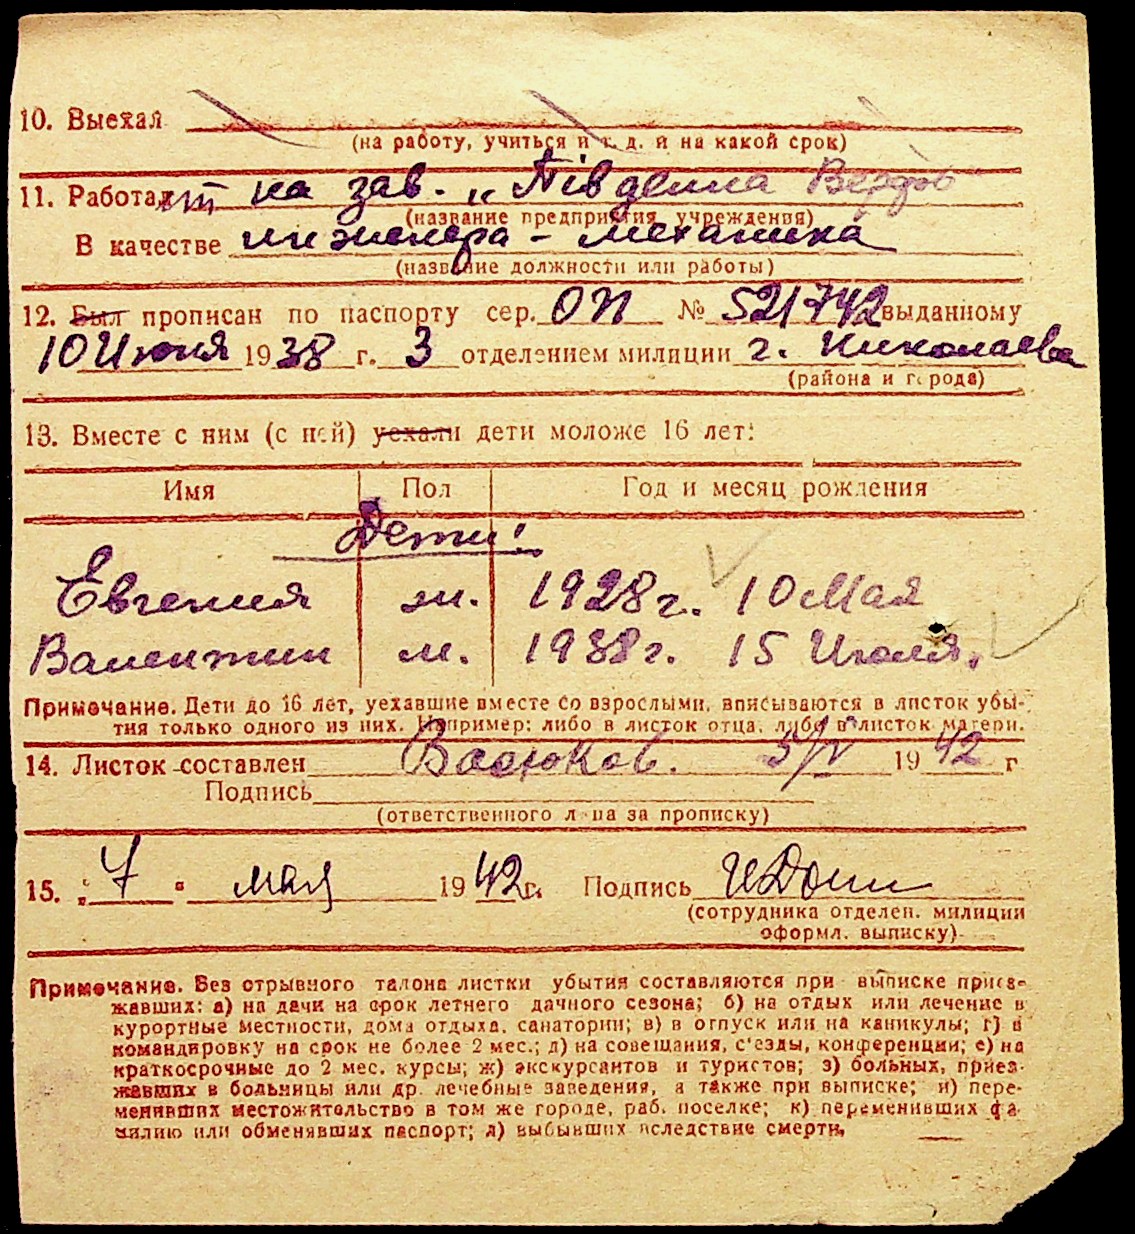 10. Выехал
(на работу, учиться и т. д. и на какой срок)
11. Работает на зав. „Південна Верфь"
(название предприятия, учреждения)
В качестве инженера - механика
(название должности или работы)
12. Был прописан по паспорту сер. ОП № 521742 выданному
10 Июня 1938 г. 3 отделением милиции г. Николаева
(района и города)
13. Вместе с ним (с ней) уехали дети моложе 16 лет:
Имя Пол Год и месяц рождения
Дети:
Евгения ж. 1928 г. 10 Мая
Валентин м. 1938 г. 15 Июля.
Примечание. Дети до 16 лет, уехавшие вместе со взрослыми, вписываются в листок убы-
тия только одного из них. Например: либо в листок отца, либо в листок матери.
14. Листок составлен Васюков. 5/V 1942 г
Подпись
(ответственного лица за прописку)
15. „7" мая 1942 г. Подпись
(сотрудника отделен. милиции
оформл. выписку)
Примечание. Без отрывного талона листки убытия составляются при выписке приез-
жавших: а) на дачи на срок летнего дачного сезона; б) на отдых или лечение в
курортные местности, дома отдыха, санатории; в) в отпуск или на каникулы; г) в
командировку на срок не более 2 мес.; д) на совещания, с'езды, конференции; е) на
краткосрочные до 2 мес. курсы; ж) экскурсантов и туристов; з) больных, приез-
жавших в больницы или др. лечебные заведения, а также при выписке; и) пере-
менивших местожительство в том же городе, раб. поселке; к) переменивших фа-
милию или обменявших паспорт; л) выбывших вследствие смерти.